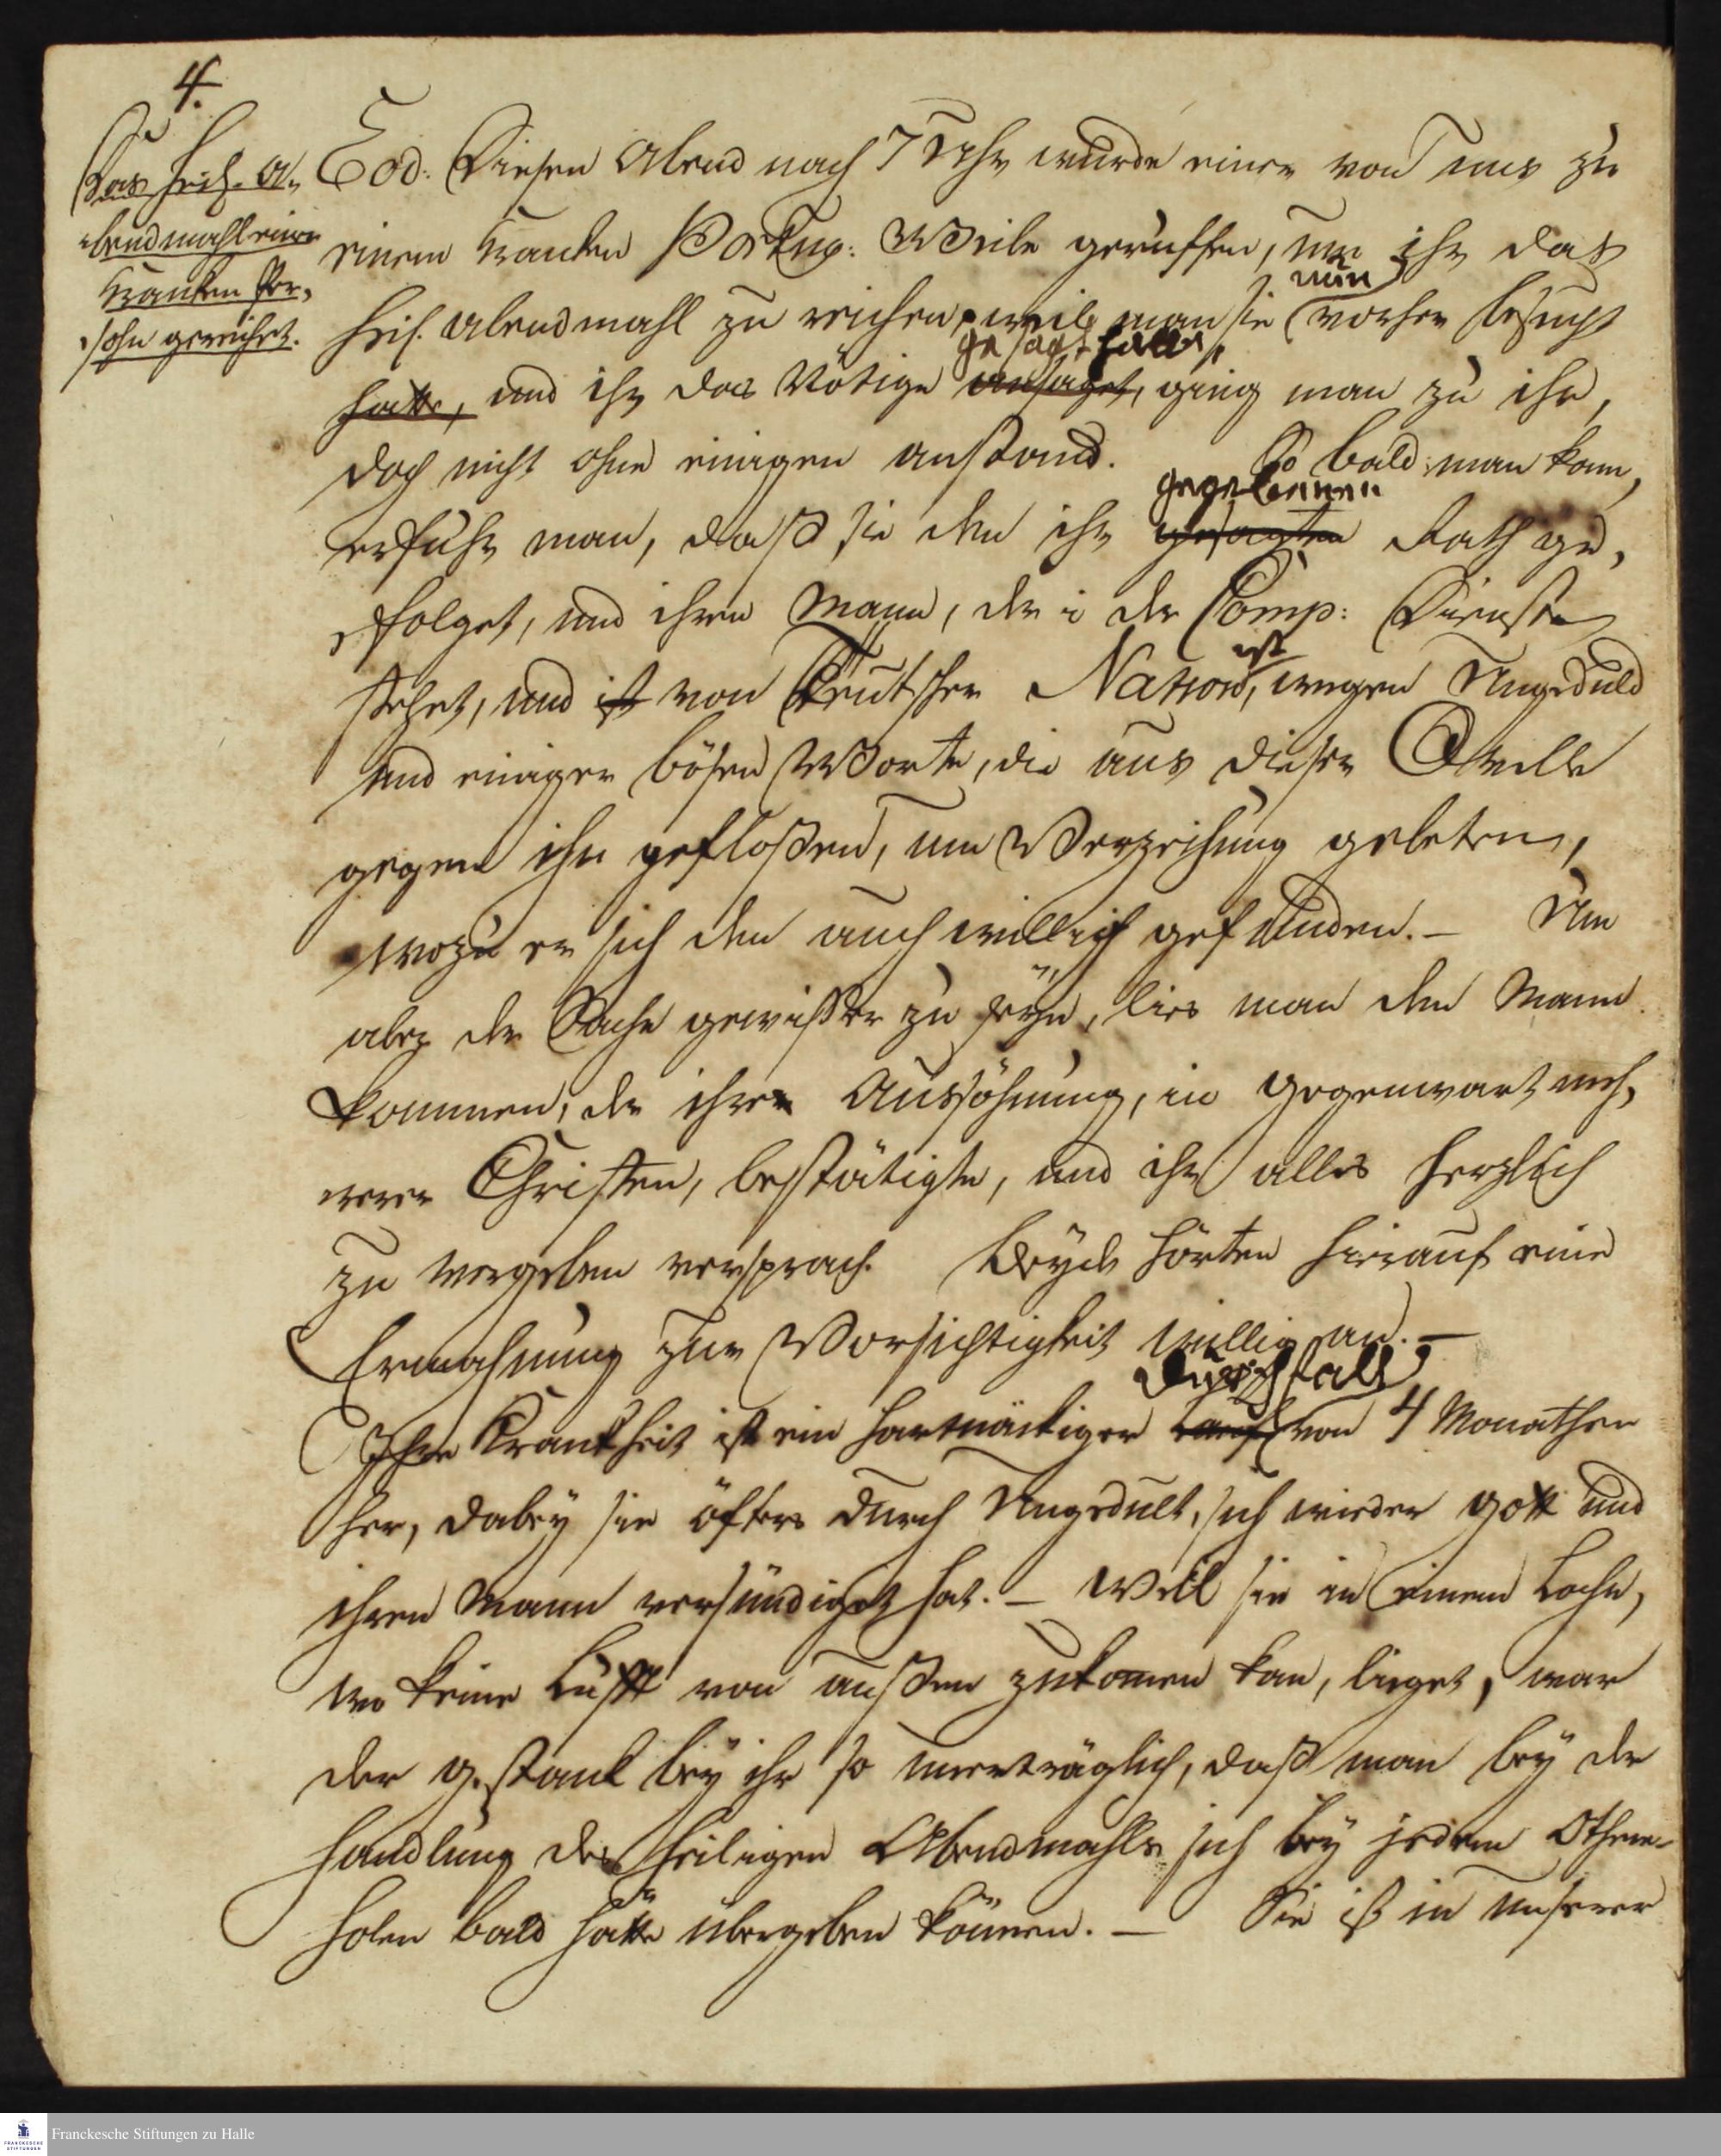 4.
Das heil. A-
bendmahl einer
Kranken Per-
sohn gereichet.
Eod: Diesen Abend nach 7 Uhr wurde einer von uns zu
einem krancken Portug: Weibe geruffen, um ihr das
heil. Abendmahl zu reichen, weil man sie nun vorher besucht
hatte, und ihr das Nötige ansaget, gesagt hatte, ging man zu ihr,
doch nicht ohne einigen anstand. So bald man kam,
erfuhr man, daß sie den ihr gesagten gegebenen Rath ge-
folget, und ihren Mann, der i der Comp: Dienste
stehet, und ist von Teutscher Nation ist, wegen Ungeduld
und einiger bösen Worte, die aus dieser Qvelle
gegen ihn gefloßen, um Verzeihung gebeten,
wozu er sich den auch willig gefunden. – Um
aber der Sache gewißer zu seyn, lies man den Mann
kommen, der ihre Aussöhnung, in gegenwart meh-
rerer Christen, bestätigte, und ihr alles herzlich
zu vergeben versprach. Beyde hörten hierauf eine
Ermahnung zur Vorsichtigkeit willig an. –
Ihre Krankheit ist ein hartnäckiger Durchfall von 4 Monathen
her, dabey sie öfters durch Ungedult, sich wieder Gott und
ihren Mann versündiget hat. – Weil sie in einem Loche,
wo keine Lufft von außen zukomen kan, lieget, war
der Gestank bey ihr so unerträglich, daß man bey der
Handlung des heiligen Abendmahls sich bey jedem Othem-
holen bald hätte übergeben können. – Sie ist in unserer
Franckesche Stiftungen zu Halle
FRANCKESCHE
STIFTUNGEN